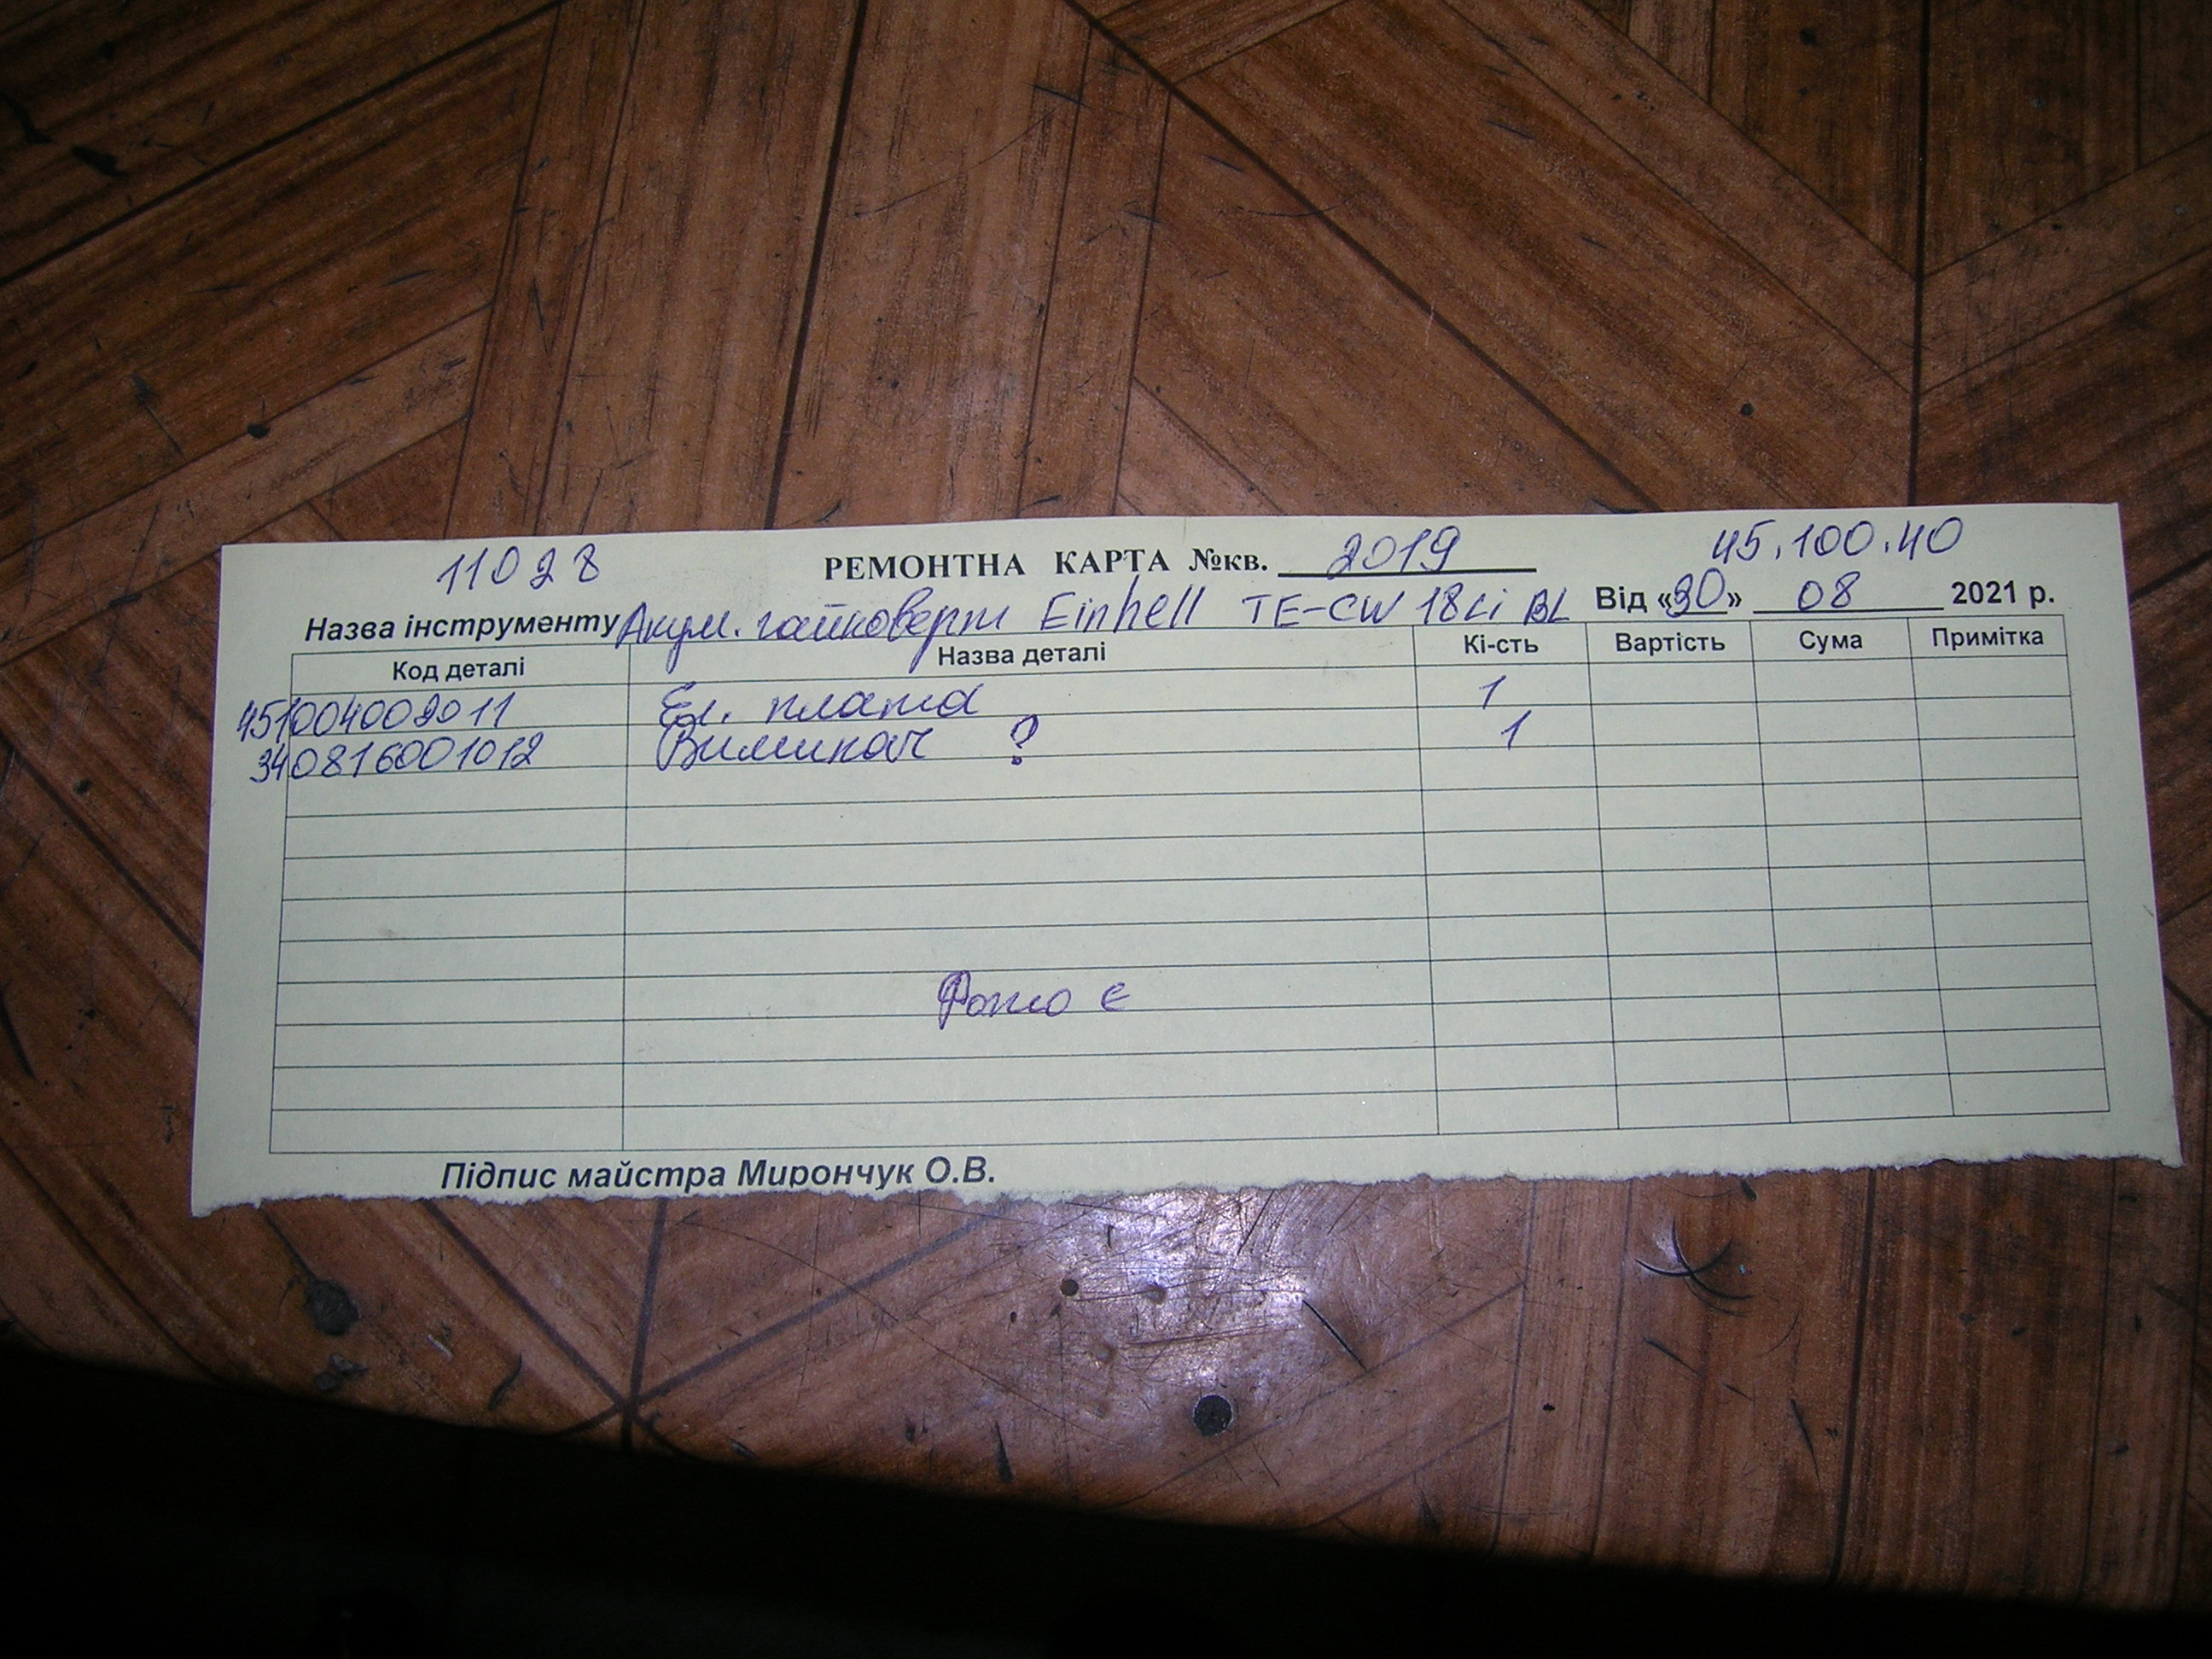 11028 РЕМОНТНА КАРТА №кв. 2019 45.100.40
Назва інструменту Акум. гайковерт Einhell TE-CW 18Li BL Від «30» 08 2021 р.
Код деталі Назва деталі Кі-сть Вартість Сума Примітка
451004002011 Ел. плата 1
340816001012 Вимикач ? 1
Фото є
Підпис майстра Мирончук О.В.